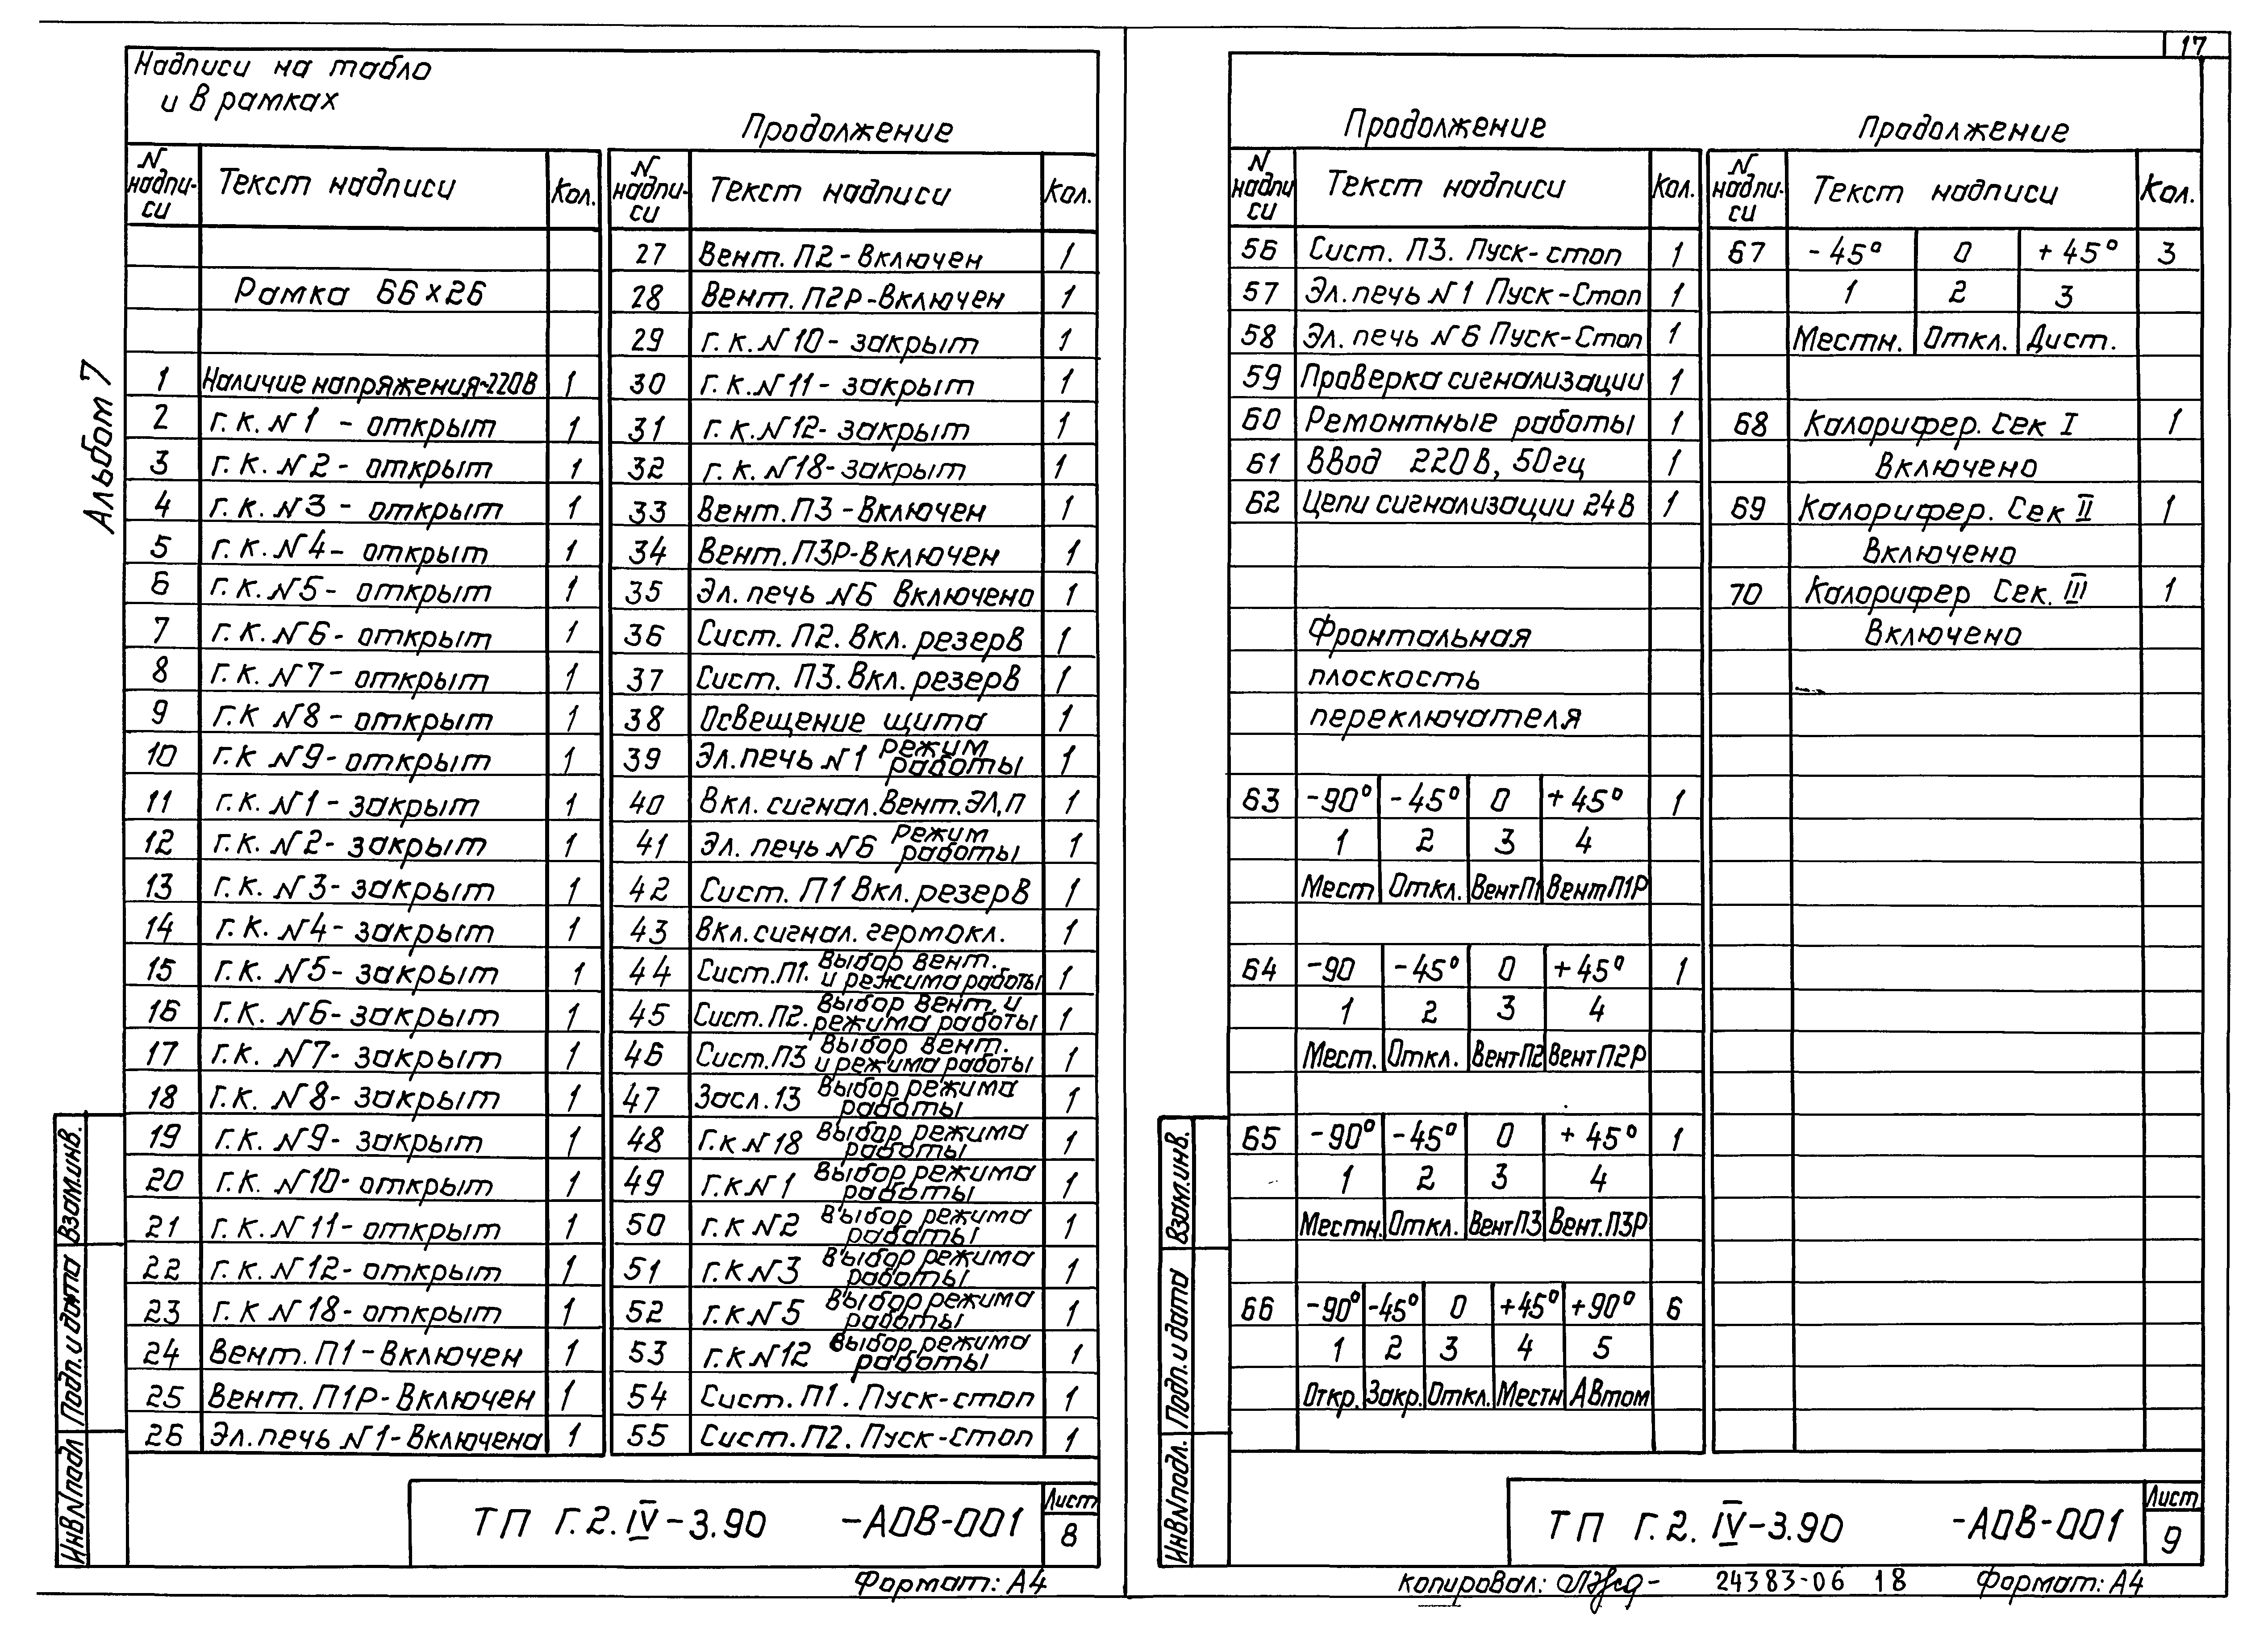 17
Надписи на табло
и в рамках
Продолжение
N надпи-си Текст надписи Кол.
Рамка 66×26
1 Наличие напряжения~220В 1
2 г.к. N1 - открыт 1
3 г.к. N2 - открыт 1
4 г.к. N3 - открыт 1
5 г.к. N4 - открыт 1
6 г.к. N5 - открыт 1
7 г.к. N6 - открыт 1
8 г.к. N7 - открыт 1
9 г.к N8 - открыт 1
10 г.к N9 - открыт 1
11 г.к. N1 - закрыт 1
12 г.к. N2 - закрыт 1
13 г.к. N3 - закрыт 1
14 г.к. N4 - закрыт 1
15 г.к. N5 - закрыт 1
16 г.к. N6 - закрыт 1
17 г.к. N7 - закрыт 1
18 г.к. N8 - закрыт 1
19 г.к. N9 - закрыт 1
20 г.к. N10 - открыт 1
21 г.к. N11 - открыт 1
22 г.к. N12 - открыт 1
23 г.к N18 - открыт 1
24 Вент. П1 - Включен 1
25 Вент. П1Р - Включен 1
26 Эл. печь N1 - Включена 1
N надпи-си Текст надписи Кол.
27 Вент. П2 - Включен 1
28 Вент. П2Р - Включен 1
29 г.к. N10 - закрыт 1
30 г.к. N11 - закрыт 1
31 г.к. N12 - закрыт 1
32 г.к. N18 - закрыт 1
33 Вент. П3 - Включен 1
34 Вент. П3Р - Включен 1
35 Эл. печь N6 Включено 1
36 Сист. П2. Вкл. резерв 1
37 Сист. П3. Вкл. резерв 1
38 Освещение щита 1
39 Эл. печь N1 режим работы 1
40 Вкл. сигнал. Вент. ЭЛ,П 1
41 Эл. печь N6 Режим работы 1
42 Сист. П1 Вкл. резерв 1
43 Вкл. сигнал. гермокл. 1
44 Сист. П1. Выбор вент. и режима работы 1
45 Сист. П2. Выбор вент. и режима работы 1
46 Сист. П3 Выбор вент. и режима работы 1
47 Засл. 13 Выбор режима работы 1
48 Г.к N18 Выбор режима работы 1
49 г.к N1 Выбор режима работы 1
50 г.к N2 Выбор режима работы 1
51 г.к N3 Выбор режима работы 1
52 г.к N5 Выбор режима работы 1
53 г.к N12 Выбор режима работы 1
54 Сист. П1. Пуск-стоп 1
55 Сист. П2. Пуск-стоп 1
Альбом 7
Взам.инв.
Подп. и дата
Инв N подл
ТП Г.2. IV-3.90 -АОВ-001
Лист
8
Формат: А4
Продолжение
N надпи си Текст надписи Кол.
56 Сист. П3. Пуск-стоп 1
57 Эл. печь N1 Пуск-Стоп 1
58 Эл. печь N6 Пуск-Стоп 1
59 Проверка сигнализации 1
60 Ремонтные работы 1
61 Ввод 220В, 50гц 1
62 Цепи сигнализации 24В 1
Фронтальная
плоскость
переключателя
63 -90° -45° 0 +45° 1
1 2 3 4
Мест. Откл. Вент П1 Вент П1Р
64 -90 -45° 0 +45° 1
1 2 3 4
Мест. Откл. Вент П2 Вент П2Р
65 -90° -45° 0 +45° 1
1 2 3 4
Местн. Откл. Вент П3 Вент. П3Р
66 -90° -45° 0 +45° +90° 6
1 2 3 4 5
Откр. Закр. Откл. Местн Автом
Продолжение
N надпи-си Текст надписи Кол.
67 -45° 0 +45° 3
1 2 3
Местн. Откл. Дист.
68 Калорифер. Сек I 1
Включено
69 Калорифер. Сек II 1
Включено
70 Калорифер Сек. III 1
Включено
Взам.инв.
Подп. и дата
Инв N подл.
ТП Г.2. IV-3.90 -АОВ-001
Лист
9
копировал: 24383-06 18 Формат: А4